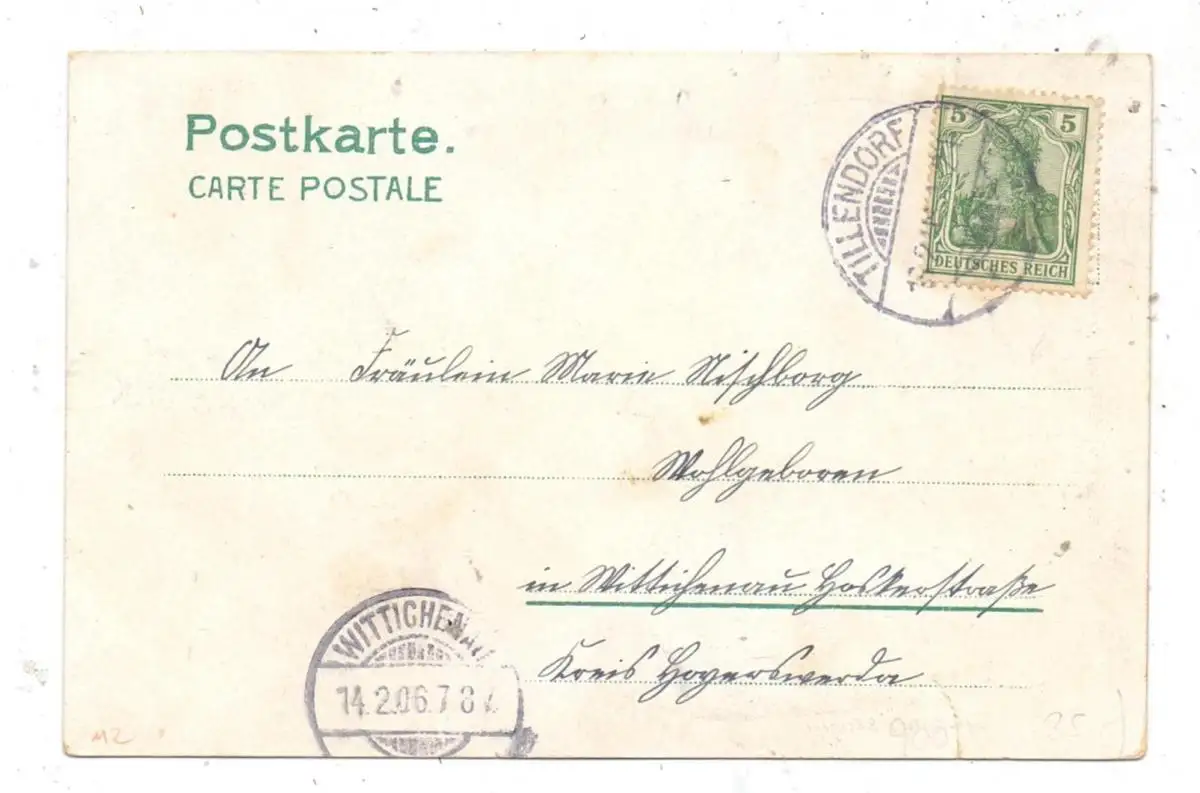 Postkarte.
CARTE POSTALE
5 5
DEUTSCHES REICH
TILLENDORF
An Fräulein Marie Nischborg
Wohlgeboren
in Wittichenau Hoskerstraße
Kreis Hoyerswerda
WITTICHENAU
14.2.06.7 8
MZ